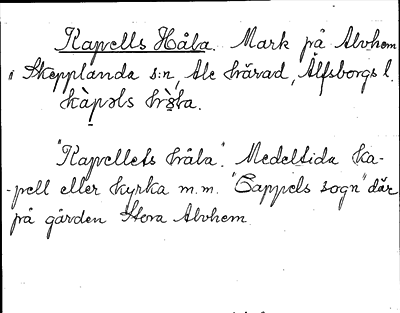 Kapells Håla. Mark på Alvhem
i Skepplanda s:n, Ale härad, Älfsborgs l.
"Kapellets håla". Medeltida ka-
-pell eller kyrka m.m. "Cappels sogn" där
på gården Stora Alvhem